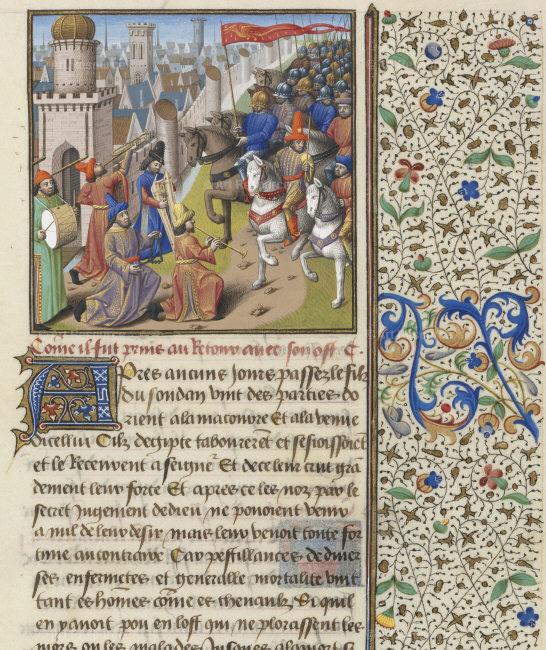 Come il fut prins au Retour avec son ost C.
Apres aucuns jours passez le filz
du soudan vint des parties do
rient a la maconrre Et a la venue
dicellui Cilz degipte tabourerent et sesioissoient
et le Recevrent a seigneur Et de ce leur crut gra
dement leur force Et apres ce les noz par le
secret Jugement de dieu ne povoient venir
a nul de leur desir mais leur venoit toute for
tune au contraire Car pestillances de diver
ses enfermetes et generalle mortalite vint
tant es homes come es chevaulx Si quil
en y avoit pou en lost qui ne plorassent les
mors ou les malades Jusques a la mort